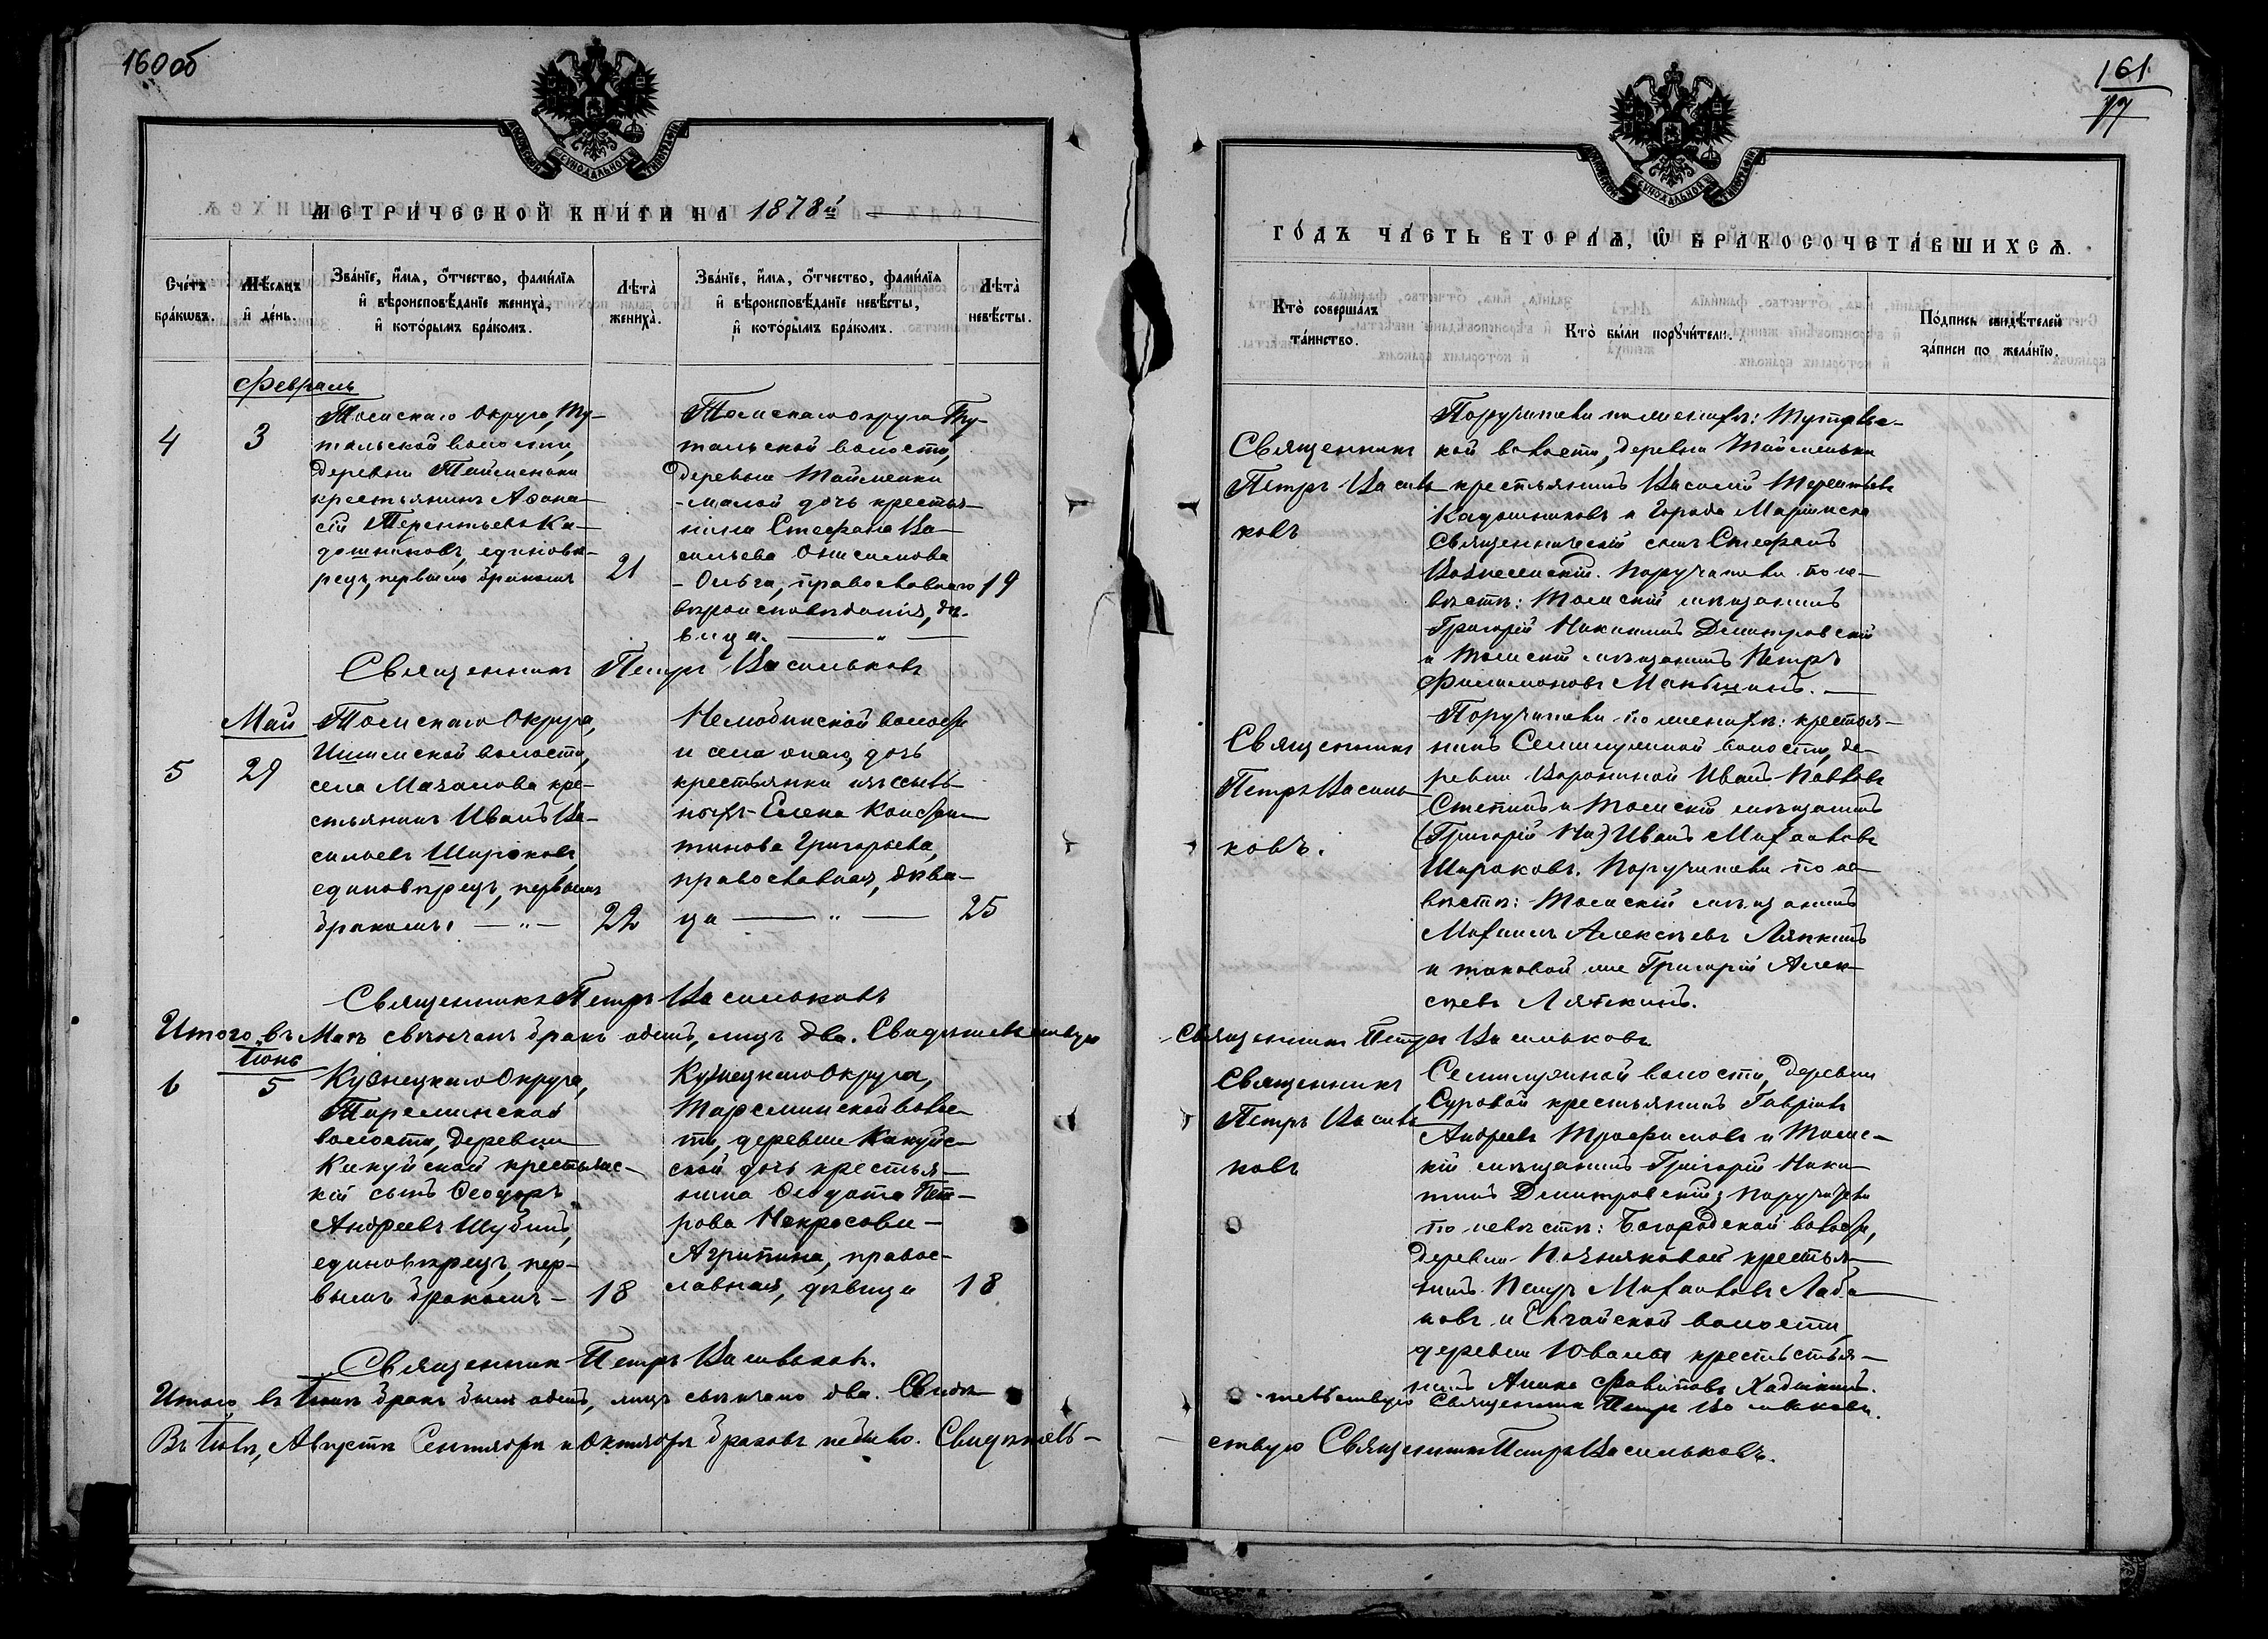 160об
МЕТРИЧЕСКОЙ КНИГИ НА 1878й
Счетъ браковъ.
Мѣсяцъ и день.
Званіе, имя, отчество, фамилія и вѣроисповѣданіе жениха, и которымъ бракомъ.
Лѣта жениха.
Званіе, имя, отчество, фамилія и вѣроисповѣданіе невѣсты, и которымъ бракомъ.
Лѣта невѣсты.
Февраль
4
3
Томскаго Округа, Ту-
тальской волости,
деревни Тайменьки
крестьянинъ Афана-
сій Терентьевъ Ка-
дошниковъ, единовѣ-
рецъ, первымъ бракомъ
21
Томскаго округа Ту-
тальской волости,
деревни Тайменки
-малой дочь крестья-
нина Стефана Ва-
сильева Онисимова
-Ольга, православнаго
вѣроисповѣданія, дѣ-
вица.
19
Священникъ Петръ Васильковъ
Май
5
29
Томскаго Округа,
Ишимской волости,
села Мачанова кре-
стьянинъ Иванъ Ва-
сильевъ Широковъ,
единовѣрецъ, первымъ
бракомъ.
22
Нелюбинской волости
и села онаго, дочь
крестьянки изъ ссыль-
ныхъ Елена Констан-
тинова Григорьева,
православная, дѣви-
ца
25
Священникъ Петръ Васильковъ
Итого въ Маѣ свѣнчанъ бракъ одинъ, лицъ два. Свидѣтельствую
Іюнь
6
5
Кузнецкаго Округа,
Тарсминской
волости, деревни
Кикуйской крестьянс-
кій сынъ Ѳеодоръ
Андреевъ Шубинъ,
единовѣрецъ, пер-
вымъ бракомъ-
18
Кузнецкаго Округа,
Тарсминской волос-
ти, деревни Кикуйс-
ской дочь крестья-
нина Ѳеодота Пет-
рова Некрасова-
Агрипина, правос-
лавная, дѣвица
18
Священникъ Петръ Васильковъ.
Итого въ Іюнѣ бракъ былъ одинъ, лицъ свѣнчано два. Свидѣ-
Въ Іюлѣ, Августѣ Сентябрѣ и Октябрѣ браковъ небыло. Свидѣтель-
161.
77
ГОДЪ ЧАСТЬ ВТОРАЯ, Ѡ БРАКОСОЧЕТАВШИХСЯ.
Кто совершалъ таинство.
Кто были поручители.
Подпись свидѣтелей записи по желанію.
Священникъ
Петръ Василь-
ковъ
Поручители по женихѣ: Тутальс-
кой волости, деревни Тайменьки
крестьянинъ Василій Терентьевъ
Кадошниковъ и Города Маріинска
Священническій сынъ Стефанъ
Вознесенскій. Поручители по не-
вѣстѣ: Томскій мѣщанинъ
Григорій Никитинъ Дмитровскій
и Томскій мѣщанинъ Петръ
Филимоновъ Маньшинъ.
Священникъ
Петръ Василь-
ковъ.
Поручители по женихѣ: крестья-
нинъ Семилужной волости, де-
ревни Ворониной Иванъ Павловъ
Степинъ и Томскій мѣщанинъ
(Григорій Ни) Иванъ Михайловъ
Широковъ. Поручители по не-
вѣстѣ: Томскій мѣщанинъ
Михаилъ Алексѣевъ Ляпкинъ
и таковой же Григорій Алек-
сѣевъ Ляпкинъ.
Священникъ Петръ Васильковъ
Священникъ
Петръ Василь-
ковъ
Семилужной волости, деревни
Суровой крестьянинъ Гавріилъ
Андреевъ Трофимовъ и Томс-
кій мѣщанинъ Григорій Ники-
тинъ Дмитровскій; поручители
по невѣстѣ: Богородской волости,
деревни Позняковой крестья-
нинъ Петръ Михайловъ Лаба-
новъ и Елгайской волости
деревни Ювалы крестьстья-
нинъ Аника Хадкинъ.
-тельствую Священникъ Петръ Васильковъ.
ствую Священникъ Петръ Васильковъ.